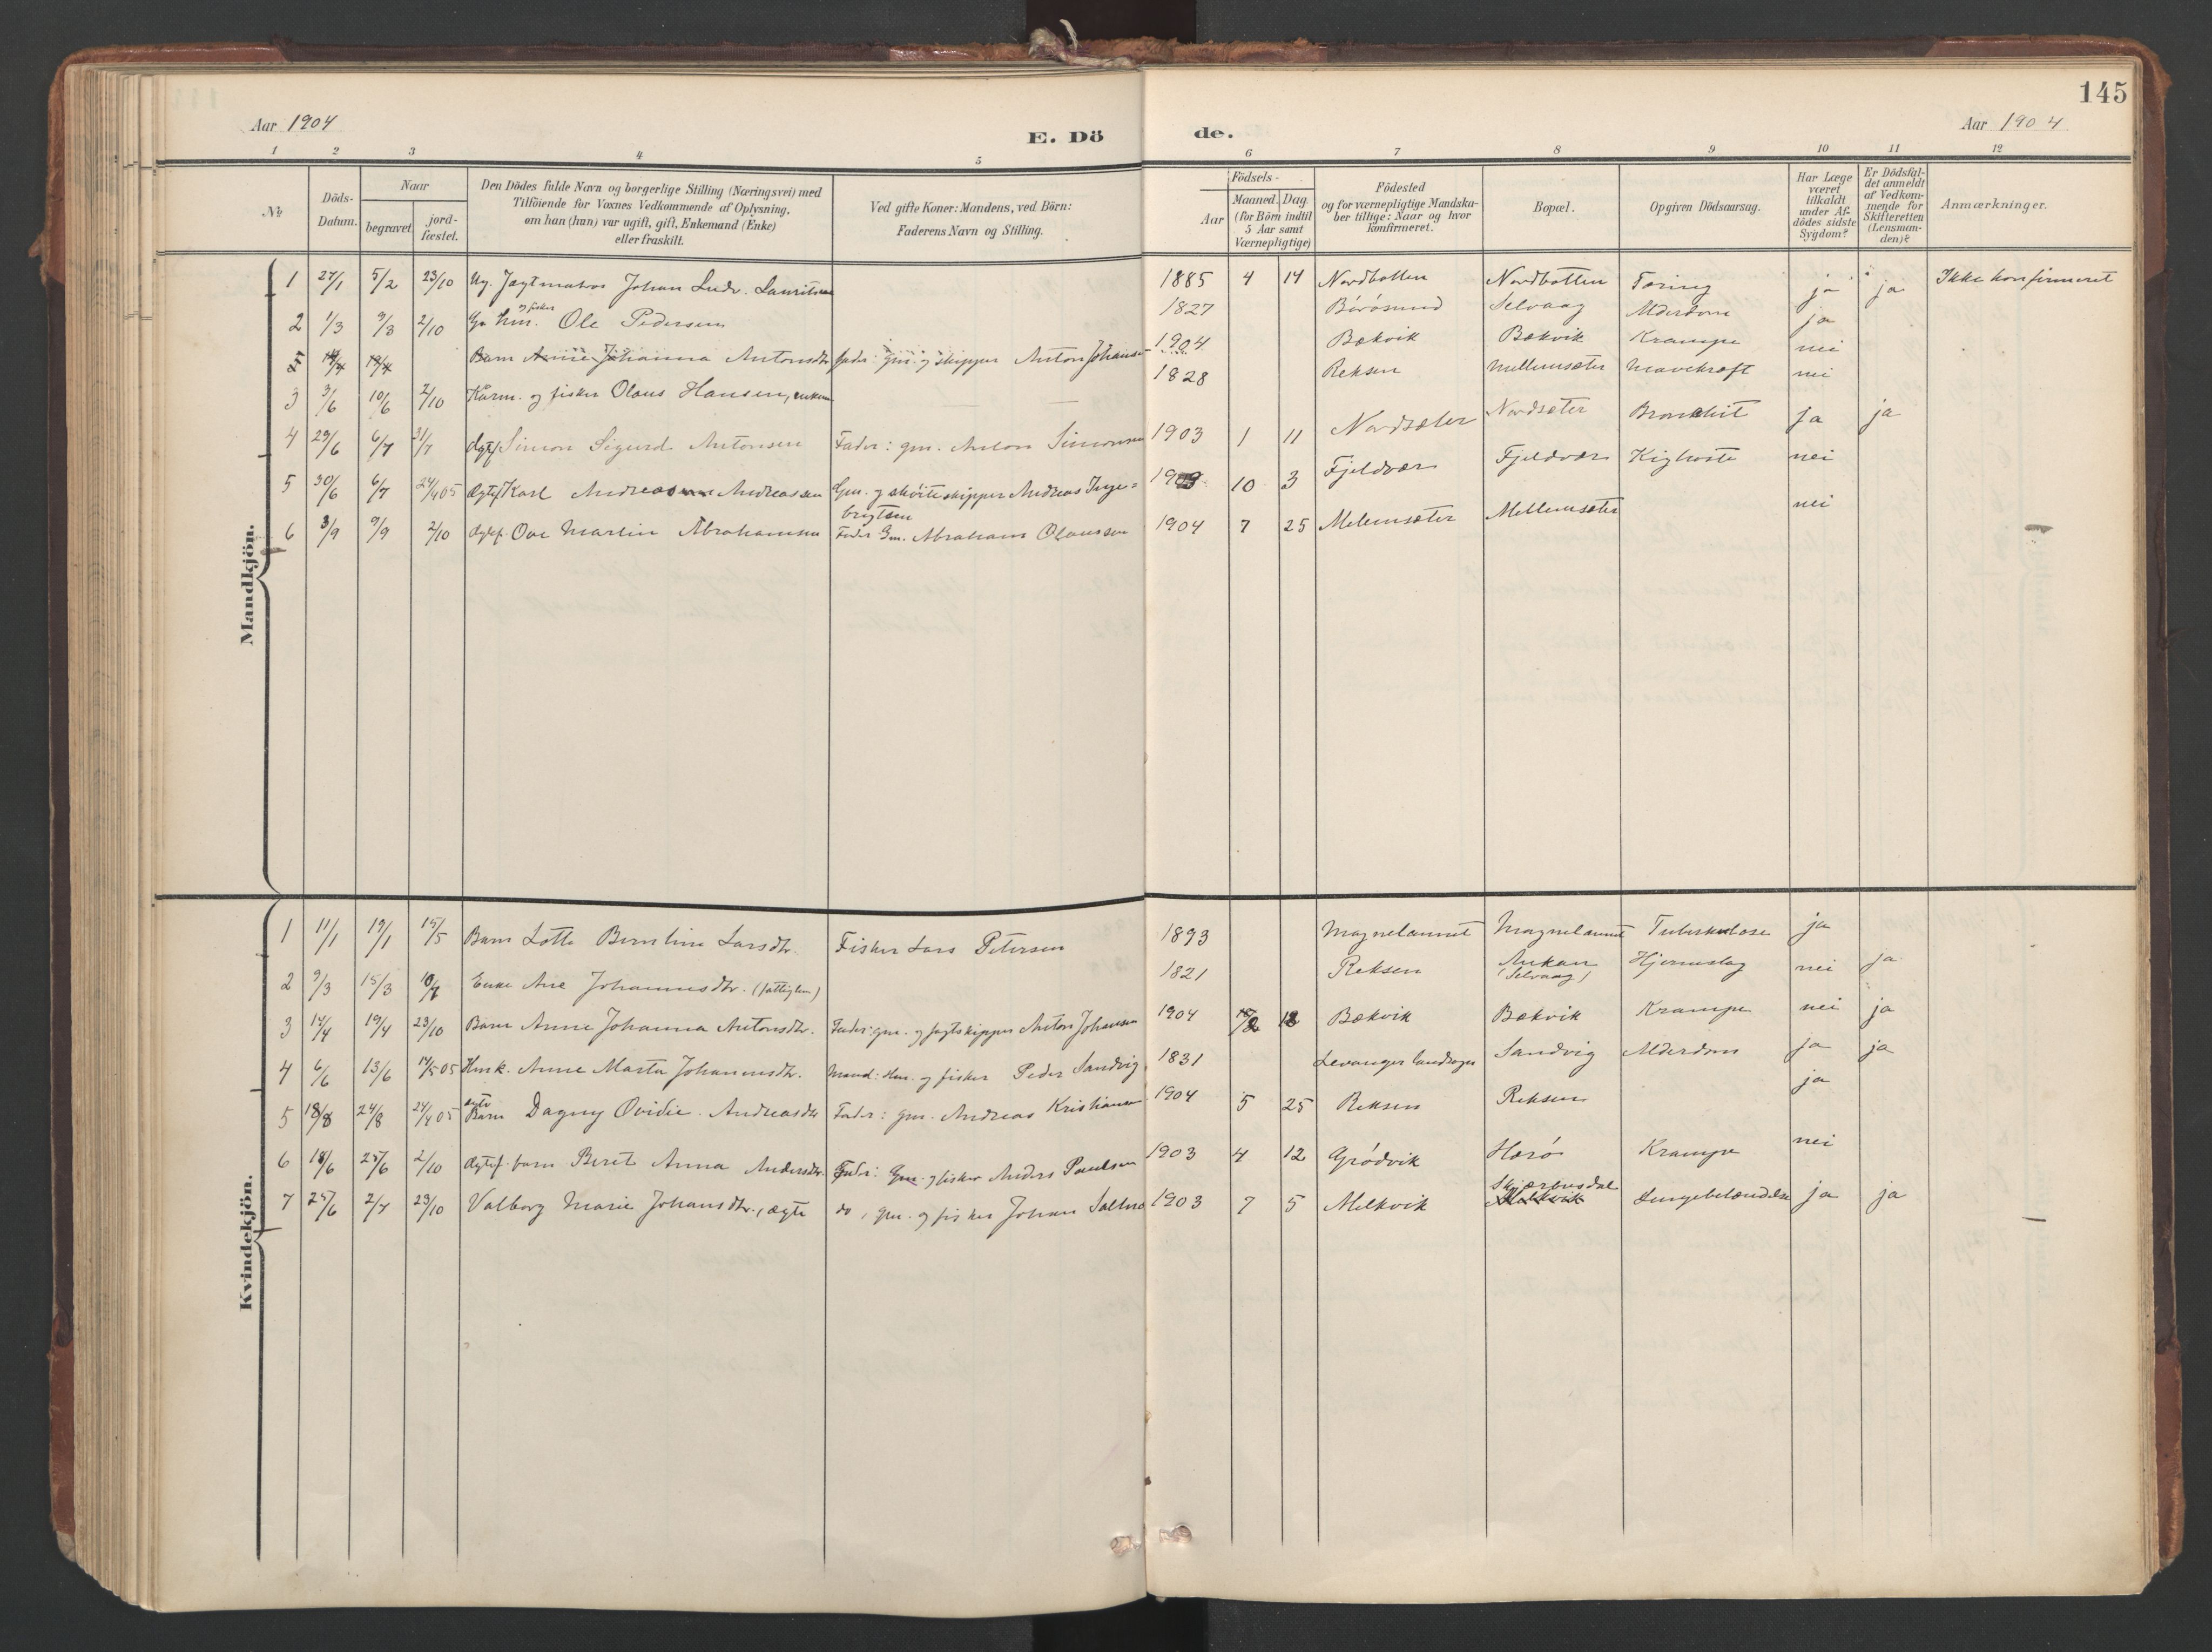 145
Aar 1904
E. Dö
de.
Aar 1904
1 2 3 4 5 6 7 8 9 10 11 12
№
Döds-
Datum.
Naar
begravet.
jord-
fæstet.
Den Dödes fulde Navn og borgerlige Stilling (Næringsvei) med
Tilföiende for Voxnes Vedkommende af Oplysning,
om han (hun) var ugift, gift, Enkemand (Enke)
eller fraskilt.
Ved gifte Koner: Mandens, ved Börn:
Faderens Navn og Stilling.
Födsels-
Aar
Maaned. Dag
(for Börn indtil
5 Aar samt
Værnepligtige)
Födested
og for værnepligtige Mandska-
ber tillige: Naar og hvor
konfirmeret.
Bopæl.
Opgiven Dödsaarsag.
Har Læge
været
tilkaldt
under Af-
dödes sidste
Sygdom?
Er Dödsfal-
det anmeldt
af Vedkom-
mende for
Skifteretten
(Lensman-
den)?
Anmærkninger.
Mandkjön.
1 27/1 5/2 23/10 Ug. Jagtmatros Johan Ludv. Lauritsen 1885 4 14 Nordbotten Nordbotten Tæring ja ja Ikke konfirmeret
2 1/3 9/3 2/10 hm. og fisker Ole Pedersen 1827 Börösund Selvaag Alderdom ja
Barn Anne Johanna Antonsdtr fader: gm. og skipper Anton Johansen 1904 Bækvik Bækvik Krampe nei
3 3/6 10/6 2/10 Kårm. og fisker Olaus Hansen, enkem 1828 Reksen Mellemsæter Mavekræft nei
4 29/6 6/7 31/7 Ægtef Simon Sigurd Antonsen Fader: gm. Anton Simonsen 1903 1 11 Nordsæter Nordsæter Bronchit ja ja
5 30/6 6/7 24/4 05 Ægtef Karl Andreas Andreassen Gm. og skøiteskipper Andreas Inge=
brigtsen 10 3 Fjeldvær Fjeldvær Kighoste nei
6 3/9 9/9 2/10 Ægtef. Ove Martin Abrahamsen Fader Gm. Abraham Olaussen 1904 7 25 Melemsæter Mellemsæter nei
Kvindekjön.
1 11/1 19/1 15/5 Barn Lotte Berntine Larsdtr. Fisker Lars Petersen 1893 Magnelannet Magnelannet Tuberkulose ja
2 9/3 15/3 Enke Ane Johannesdtr. (fattiglem) 1821 Reksen Aukan
(Selvaag) Hjerneslag nei ja
3 14/4 19/4 23/10 Barn Anne Johanna Antonsdtr. Fader: gm. og jagtskipper Anton Johansen 1904 12 Bækvik Bækvik Krampe nei ja
4 6/6 13/6 14/5 05 Hmk. Anne Marta Johannesdtr. Mand: Hm. og fisker Peder Sandvig 1831 Levanger landsogn Sandvig Alderdom ja ja
5 18/8 24/8 24/4 05 ægte Barn Dagny Ovidie Andreasdtr Fader: gm. Andreas Kristiansen 1904 5 25 Reksen Reksen ja
6 18/6 25/6 2/10 Ægtef. barn Beret Anna Andersdtr. Fader: Gm. og fisker Anders Paulsen 1903 4 12 Grødvik Hærö Krampe nei
7 25/6 2/7 23/10 Valborg Marie Johansdtr., ægte do, gm. og fisker Johan 1903 7 5 Melkvik Skjærbusdal Melkvik Lungebetændelse ja ja